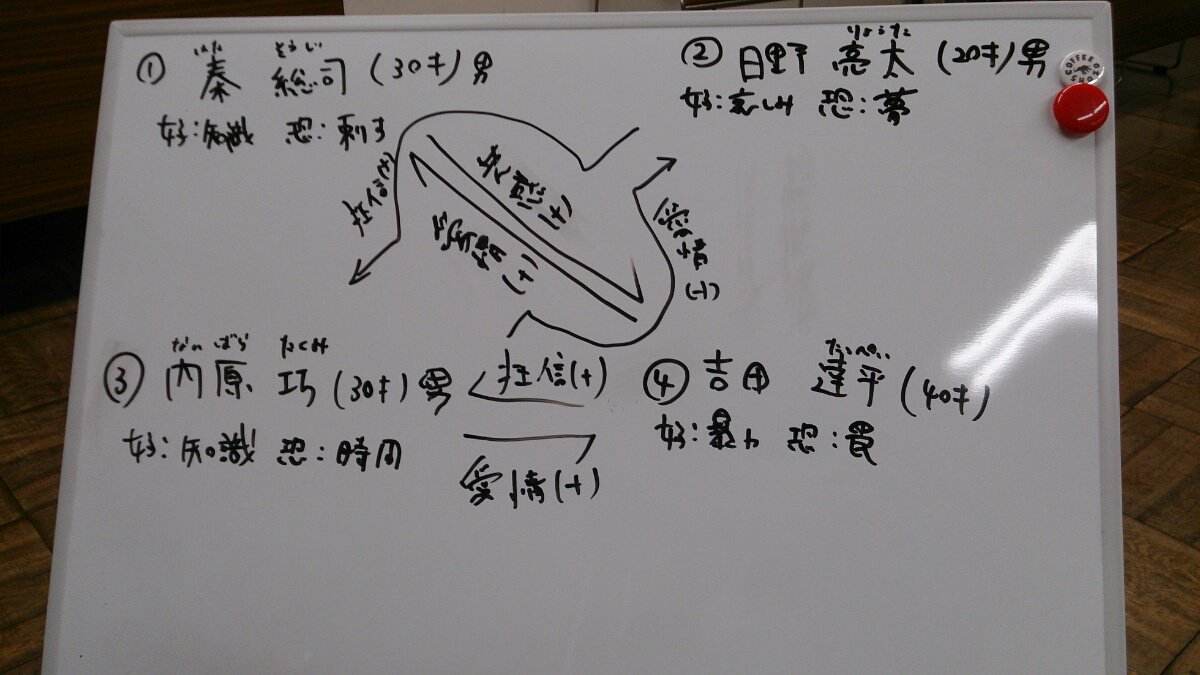 はた そうじ
① 秦 総司 (30才) 男
好:知識 恐:刺す
りょうた
② 日野 亮太 (20才) 男
好:哀しみ 恐:夢
狂信(+)
忠誠(+)
友情(+)
愛情(+)
ないばら たくみ
③ 内原 巧 (30才) 男
好:知識 恐:時間
狂信(+)
愛情(+)
たっぺい
④ 吉田 達平 (40才)
好:暴力 恐:罠